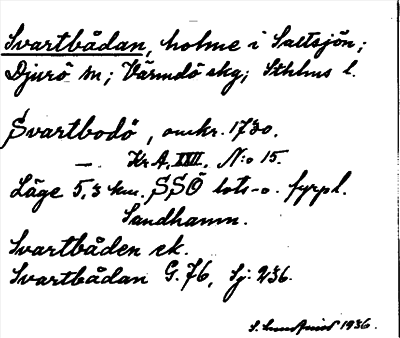 Svartbådan, holme i Saltsjön;
Djurö sn; Värmdö skg; Sthlms l.
Svartbodö, omkr. 1730.
— Kr.A. XXII. N:o 15.
Läge 5,3 km. SSÖ lots- o. fyrpl.
Sandhamn.
Svartbåden ek.
Svartbådan G. 76, Sj: 236.
S. 1936.